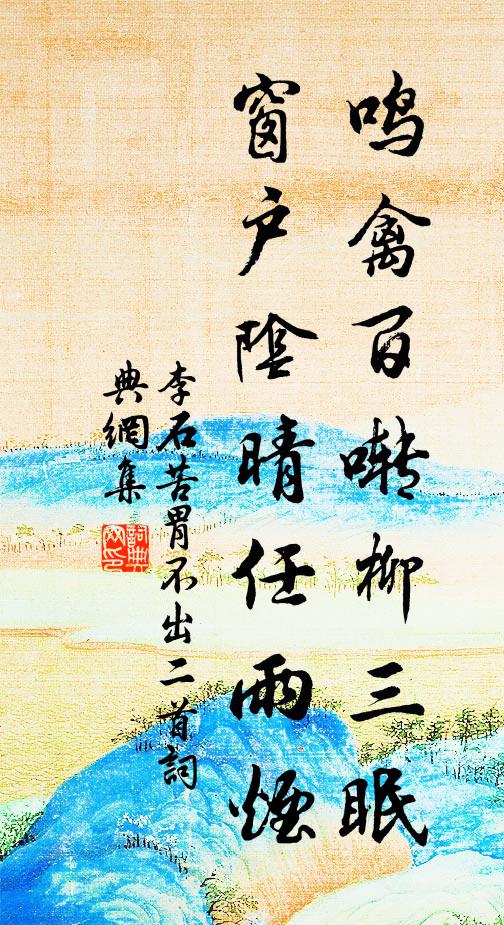 鸣禽百啭柳三眠
窗户陰晴任雨煙
李石苦胃不出二首詞
典網集